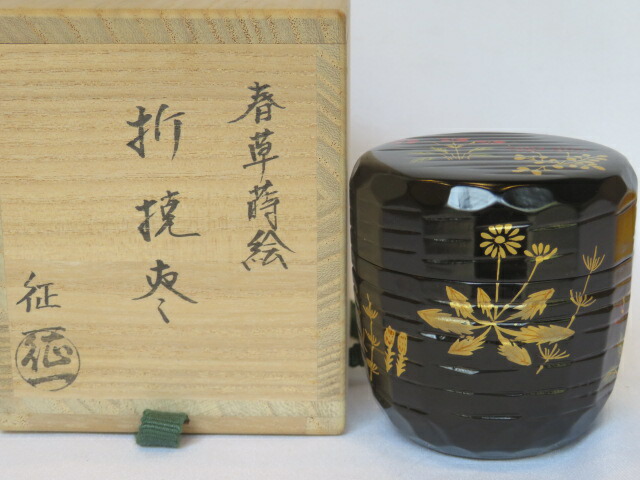 春草蒔絵
折撓棗
征
征一